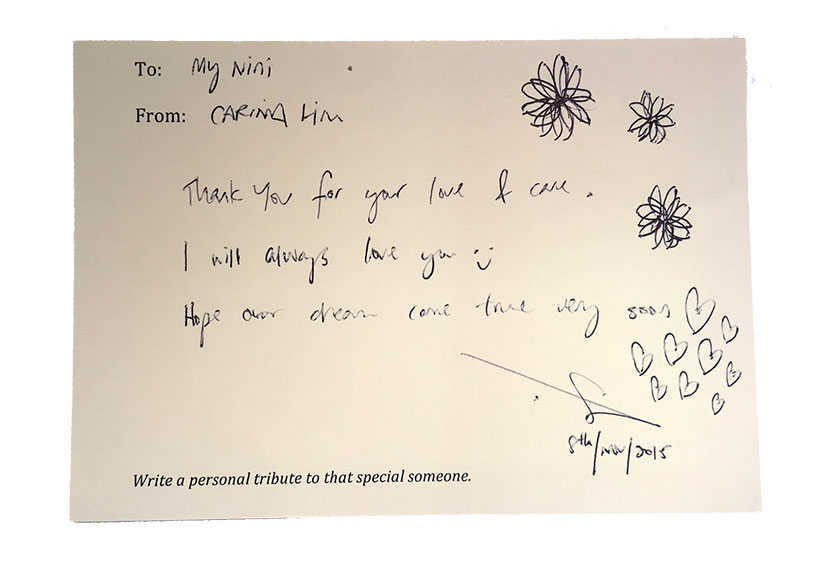 To: My Nini
From: CARINA Lim
Thank you for your love & care.
I will always love you :)
Hope our dream come true very soon
8th/Nov/2015
Write a personal tribute to that special someone.